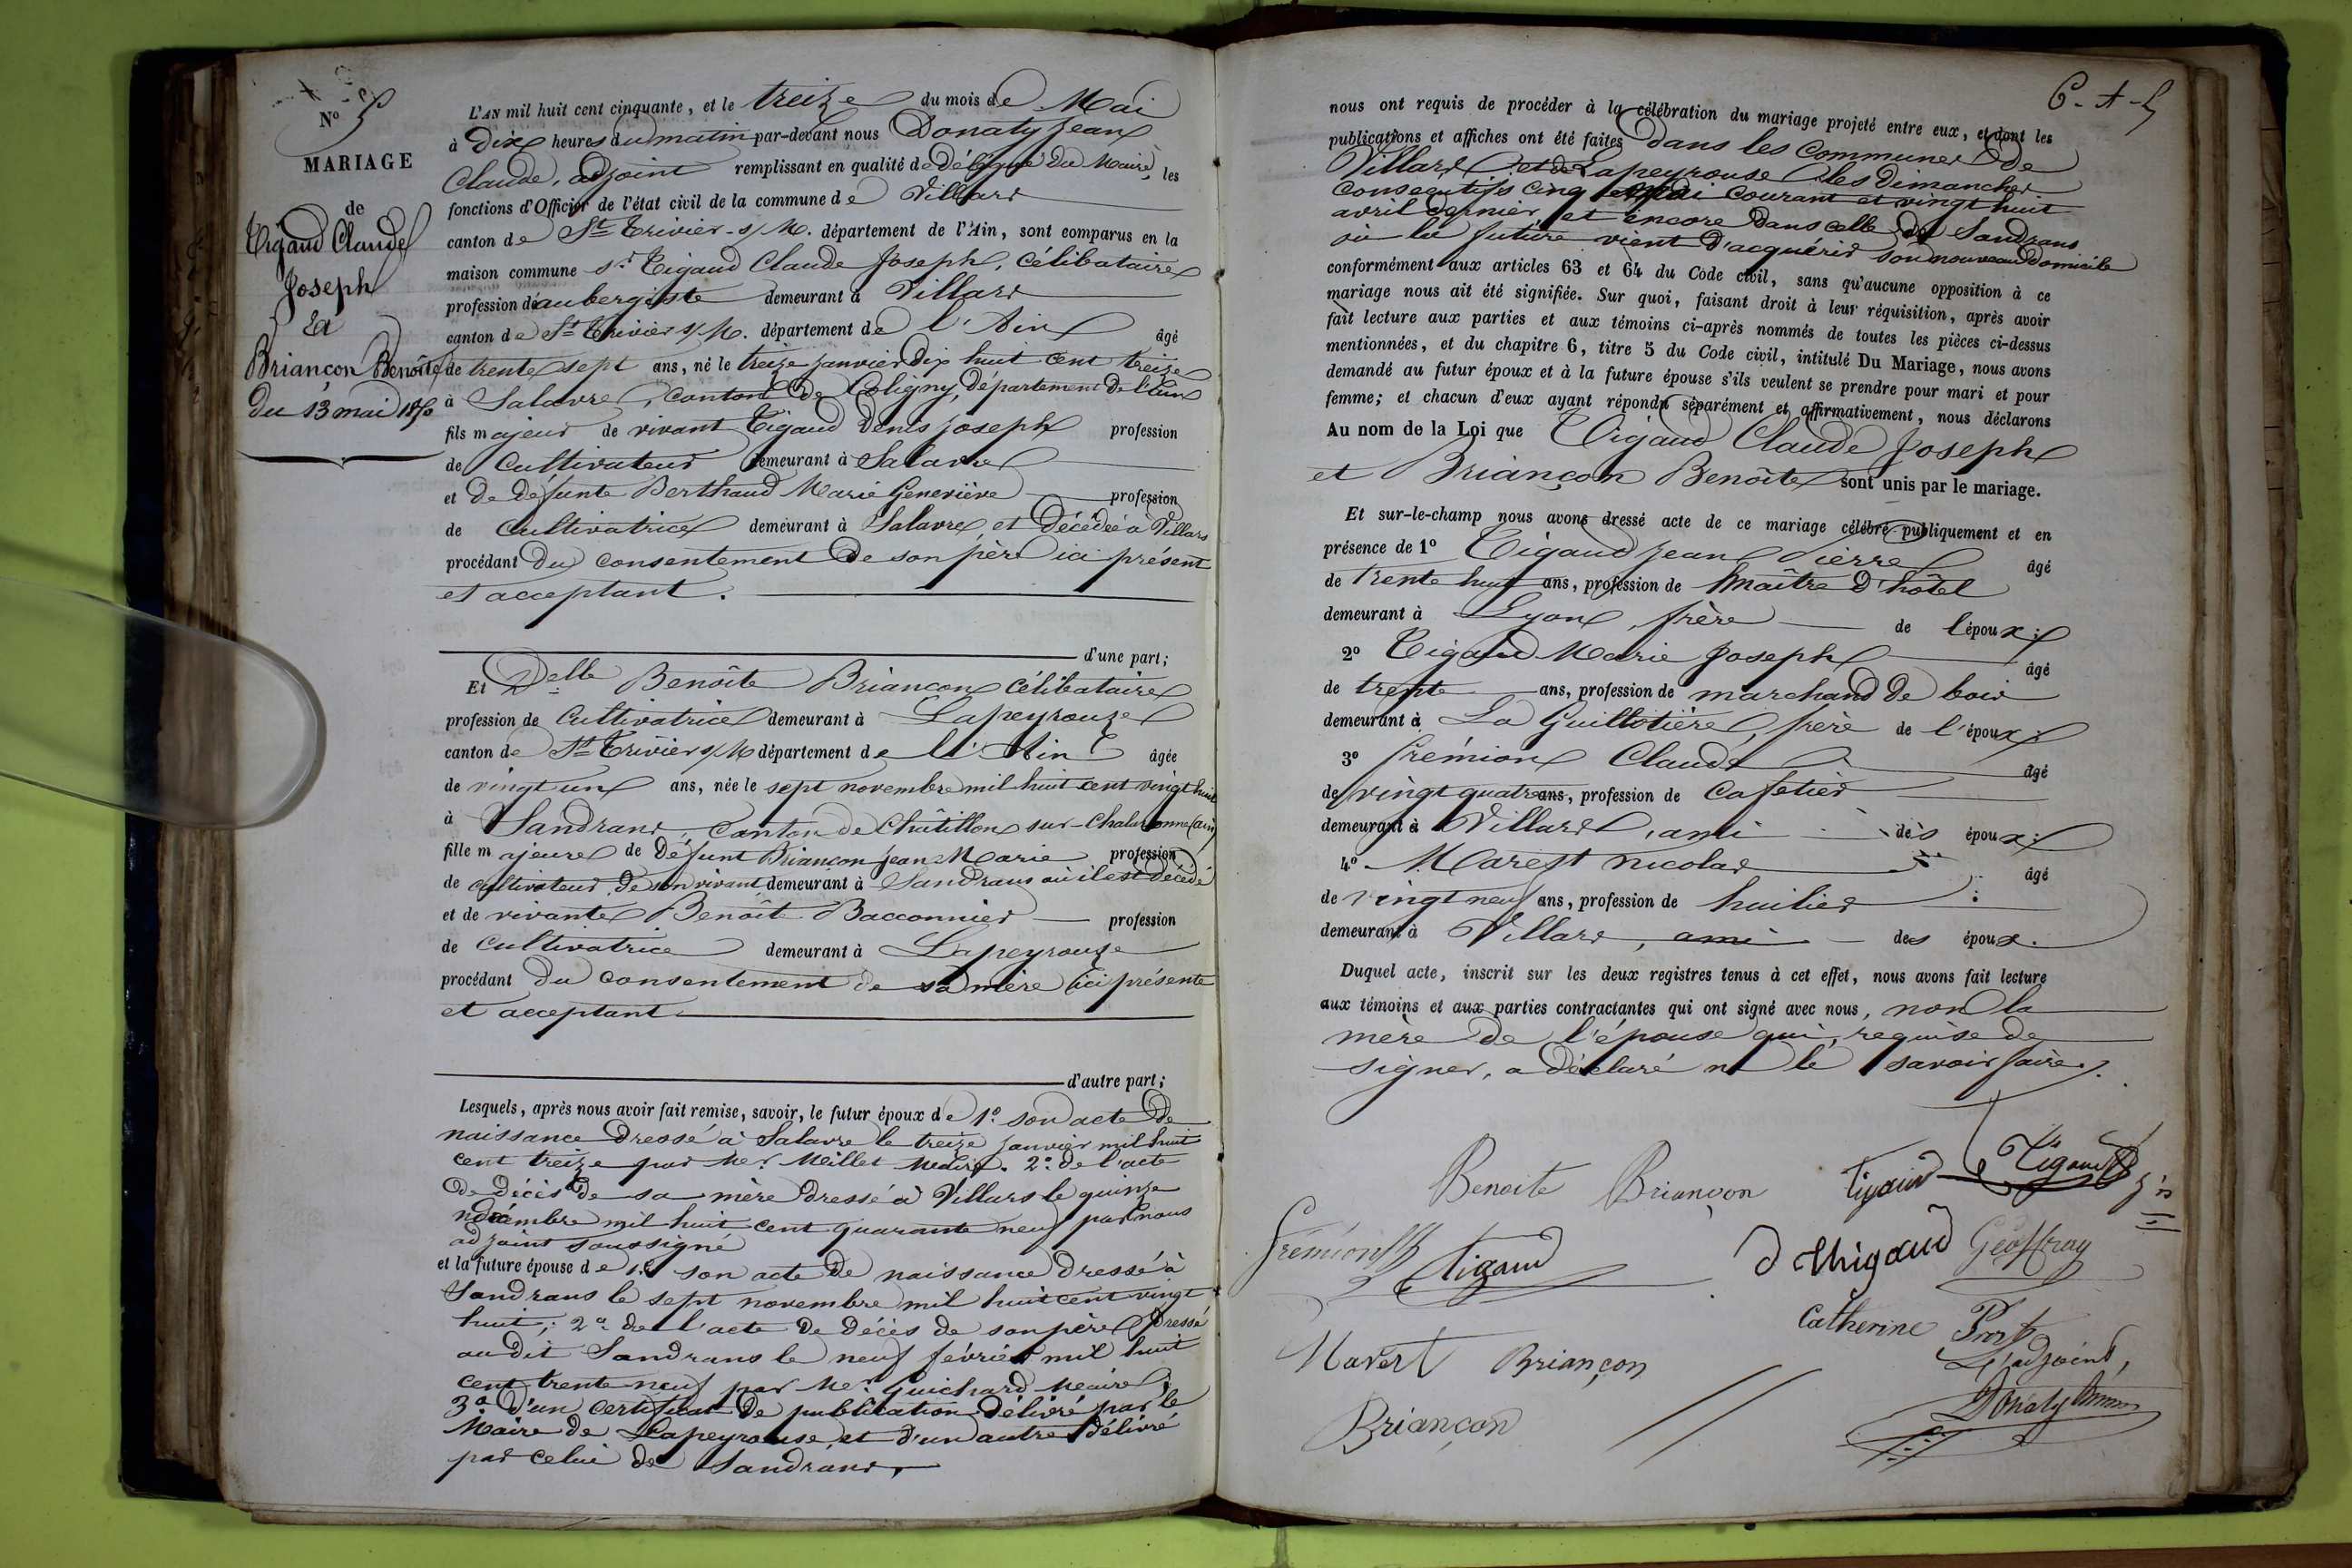 Nº 5
MARIAGE
de
Tigaud Claude
Joseph
Et
Briançon Benoîte
du 13 mai 1850
L'AN mil huit cent cinquante, et le treize du mois de Mai
à Dix heures du matin par-devant nous Donaty Jean
Claude, adjoint remplissant en qualité de Délégué du Maire, les
fonctions d'Officier de l'état civil de la commune de Villars
canton de St Trivier-s/M. département de l'Ain, sont comparus en la
maison commune sr Tigaud Claude Joseph, célibataire
profession d'aubergiste demeurant à Villars
canton de St Trivier s/M. département de l'Ain âgé
de trente sept ans, né le treize janvier dix huit cent treize
à Salavre, canton de Coligny, département de l'Ain
fils majeur de vivant Tigaud Denis Joseph profession
de Cultivateur demeurant à Salavre
et de défunte Berthaud Marie Geneviève profession
de Cultivatrice demeurant à Salavre, et Décédée à Villars
procédant du consentement de son père ici présent
et acceptant.
d'une part;
Et Delle Benoîte Briançon célibataire
profession de Cultivatrice demeurant à Lapeyrouze
canton de St Trivier s/M département de l'Ain âgée
de vingt un ans, née le sept novembre mil huit cent vingt huit
à Sandrans, canton de Châtillon sur-Chalaronne (ain)
fille majeure de défunt Briançon Jean Marie profession
de cultivateur de son vivant demeurant à Sandrans où il est décédé
et de vivante Benoît Bacconnier profession
de Cultivatrice demeurant à Lapeyrouze
procédant du consentement de sa mère ici présente
et acceptant
d'autre part;
Lesquels, après nous avoir fait remise, savoir, le futur époux de 1º son acte de
naissance dressé à Salavre le treize janvier mil huit
cent treize par Mr. Millet Maire. 2º de l'acte
de décès de sa mère dressé à Villars le quinze
mil huit cent quarante neuf par nous
adjoint soussigné
et la future épouse de 1º son acte de naissance dressé à
Sandrans le sept novembre mil huit cent vingt
huit; 2º de l'acte de décès de son père dressé
au dit Sandrans le neuf février mil huit
cent trente neuf par Mr. Guichard Maire;
3º d'un certificat de publication délivré par le
Maire de Lapeyrouse, et d'un autre délivré
par celui de Sandrans,
nous ont requis de procéder à la célébration du mariage projeté entre eux, et dont les
publications et affiches ont été faites dans les communes de
Villars et de Lapeyrouse les dimanches
consecutifs cinq mai courant et vingt huit
avril dernier, et encore dans celle de Sandrans
où la future vient d'acquérir son nouveau domicile
conformément aux articles 63 et 64 du Code civil, sans qu'aucune opposition à ce
mariage nous ait été signifiée. Sur quoi, faisant droit à leur réquisition, après avoir
fait lecture aux parties et aux témoins ci-après nommés de toutes les pièces ci-dessus
mentionnées, et du chapitre 6, titre 5 du Code civil, intitulé Du Mariage, nous avons
demandé au futur époux et à la future épouse s'ils veulent se prendre pour mari et pour
femme; et chacun d'eux ayant répondu séparément et affirmativement, nous déclarons
Au nom de la Loi que Tigaud Claude Joseph
et Briançon Benoîte sont unis par le mariage.
Et sur-le-champ nous avons dressé acte de ce mariage célébré publiquement et en
présence de 1º Tigaud Jean Pierre âgé
de trente huit ans, profession de Maître d'hôtel
demeurant à Lyon, frère de l'époux;
2º Tigaud Marie Joseph âgé
de trente ans, profession de marchand de bois
demeurant à La Guillotière, frère de l'époux;
3º Frémion Claude âgé
de vingt quatre ans, profession de Cafetier
demeurant à Villars, ami des époux;
4º Marest Nicolas âgé
de vingt neuf ans, profession de huilier
demeurant à Villars, ami des époux.
Duquel acte, inscrit sur les deux registres tenus à cet effet, nous avons fait lecture
aux témoins et aux parties contractantes qui ont signé avec nous, non la
mère de l'épouse qui, requise de
signer, a déclaré ne le savoir faire.
Benoite Briançon Tigaud Tigaud
Frémion Tigaud D Thigaud Geoffray
Catherine Prost
Marest Briançon L'adjoint,
Briançon Donaty